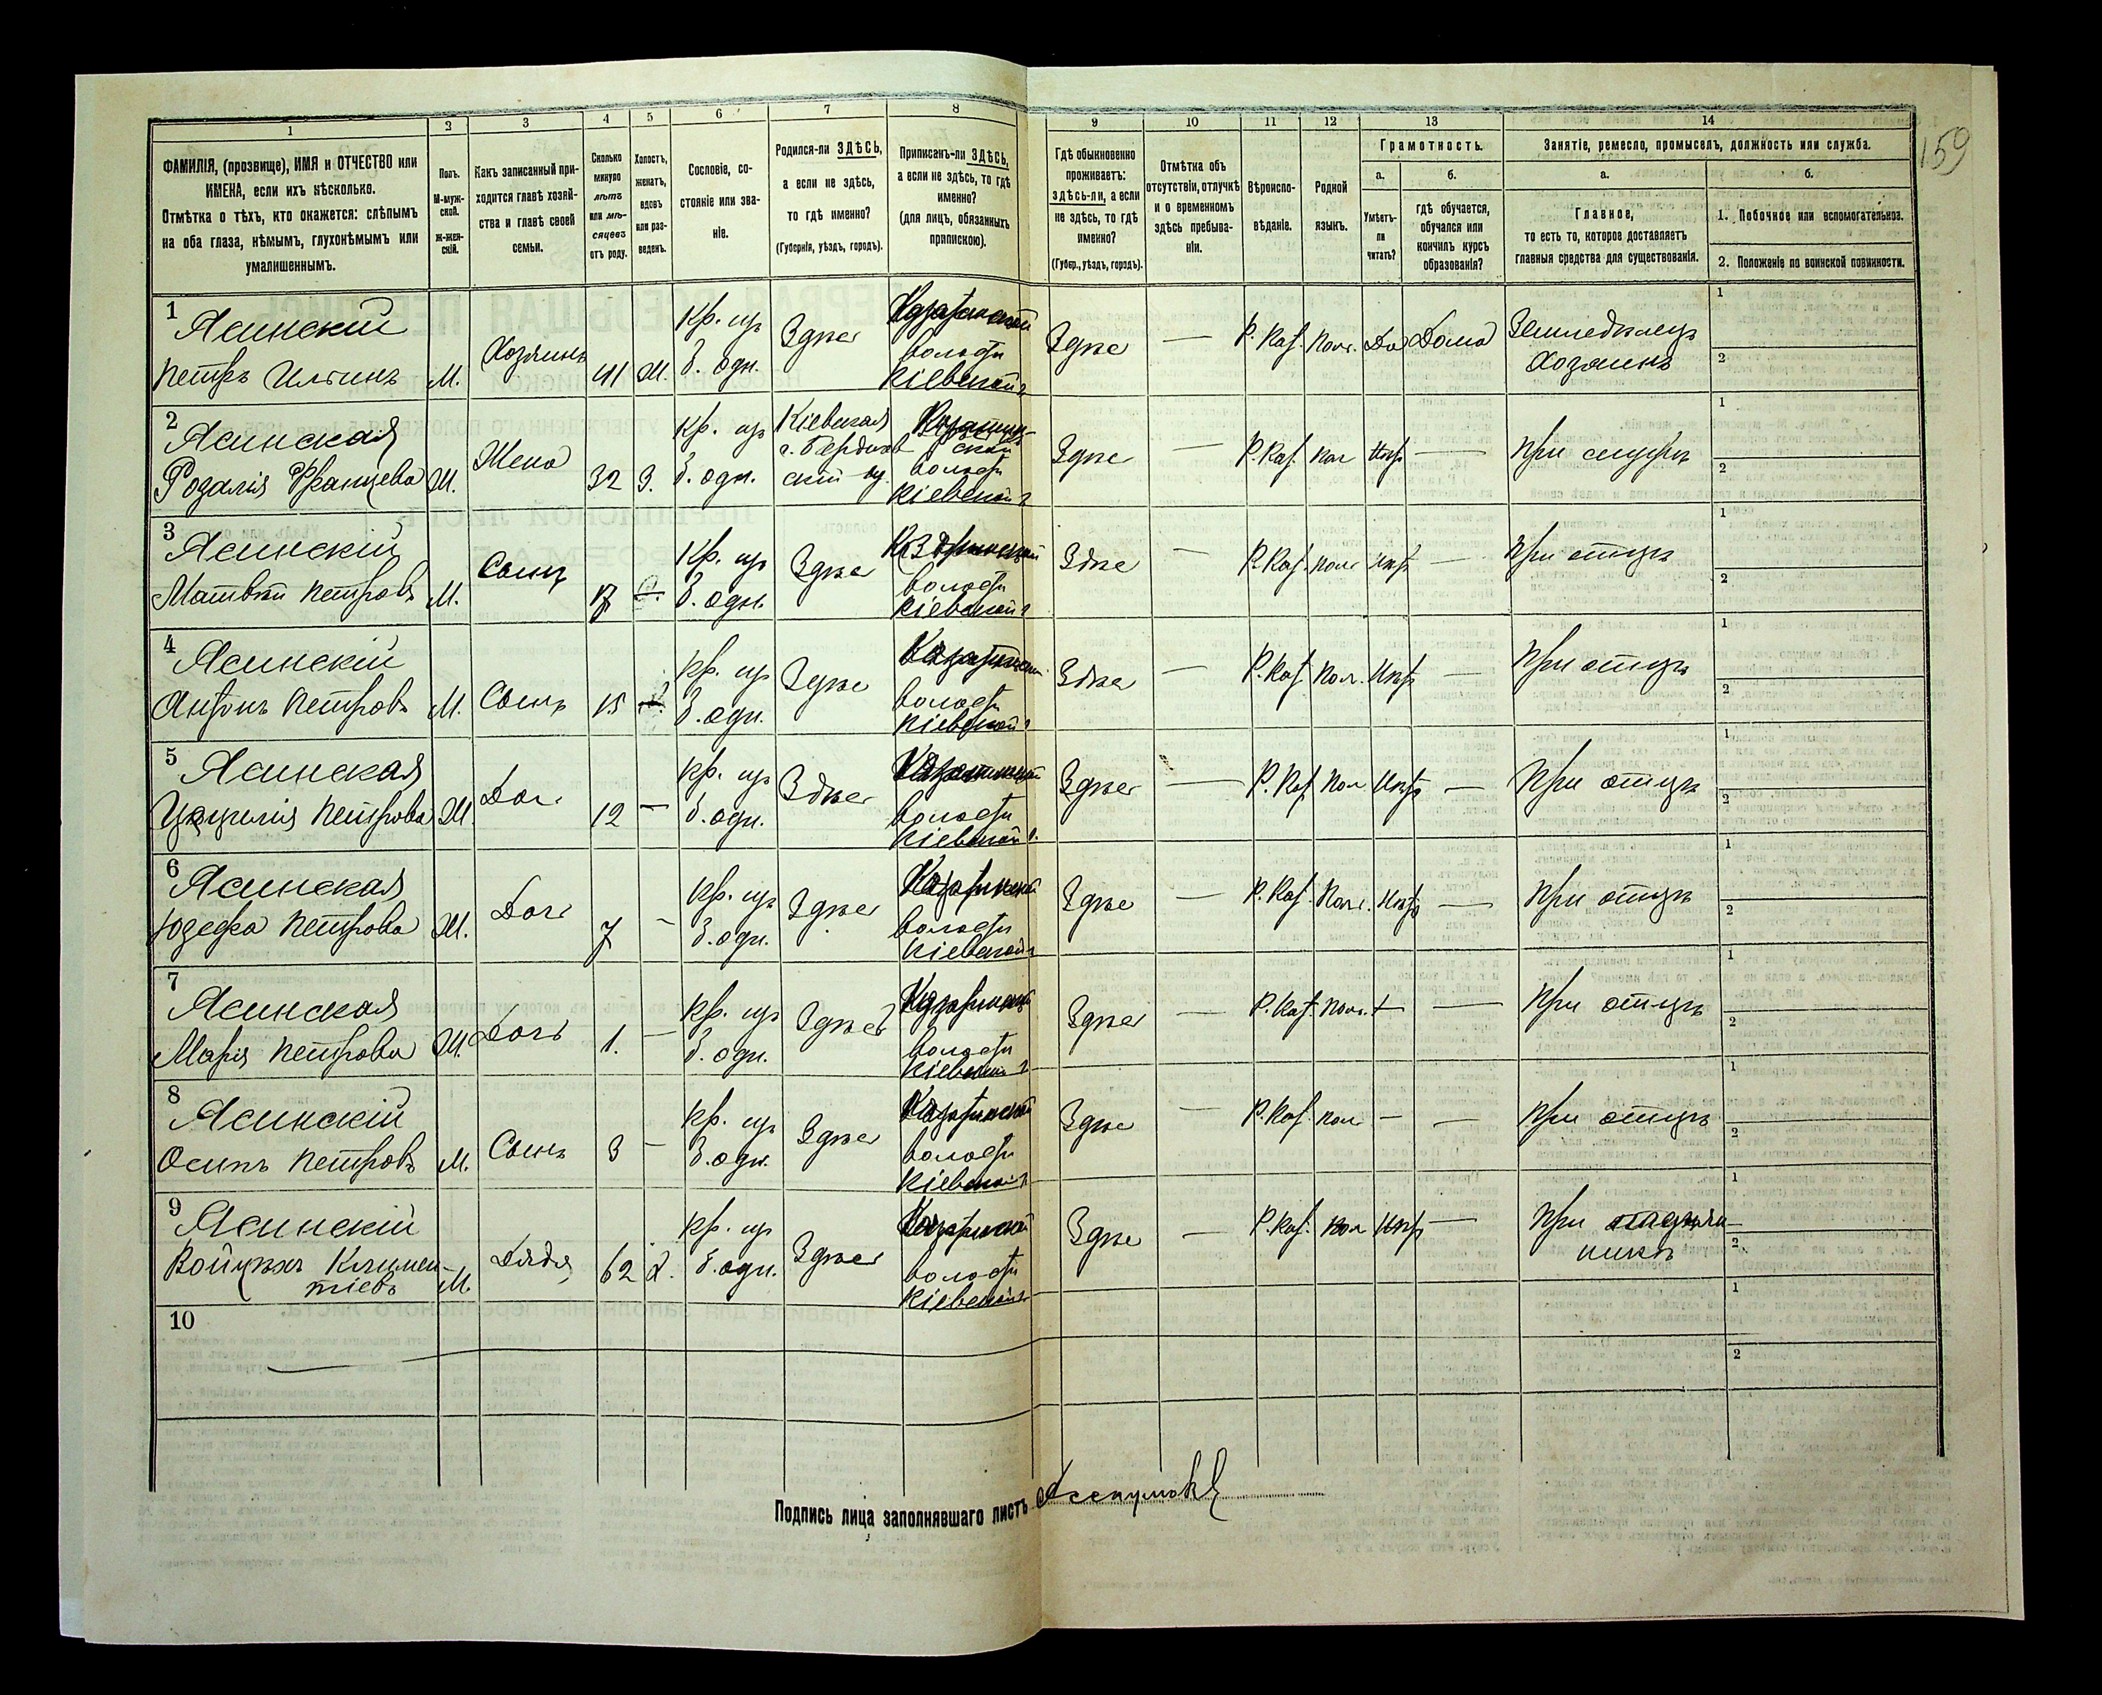 159
1
2
3
4
5
6
7
8
9
10
11
12
13
14
ФАМИЛІЯ, (прозвище), ИМЯ и ОТЧЕСТВО или
ИМЕНА, если ихъ нѣсколько.
Отмѣтка о тѣхъ, кто окажется: слѣпымъ
на оба глаза, нѣмымъ, глухонѣмымъ или
умалишеннымъ.
Полъ.
М-муж-
ской.
Ж-жен-
скій.
Какъ записанный при-
ходится главѣ хозяй-
ства и главѣ своей
семьи.
Сколько
минуло
лѣтъ
или мѣ-
сяцевъ
отъ роду.
Холостъ,
женатъ,
вдовъ
или раз-
веденъ.
Сословіе, со-
стояніе или зва-
ніе.
Родился-ли ЗДѢСЬ,
а если не здѣсь,
то гдѣ именно?
(Губернія, уѣздъ, городъ).
Приписанъ-ли ЗДѢСЬ,
а если не здѣсь, то гдѣ
именно?
(для лицъ, обязанныхъ
припискою).
Гдѣ обыкновенно
проживаетъ:
здѣсь-ли, а если
не здѣсь, то гдѣ
именно?
(Губер., уѣздъ, городъ).
Отмѣтка объ
отсутствіи, отлучкѣ
и о временномъ
здѣсь пребыва-
ніи.
Вѣроиспо-
вѣданіе.
Родной
языкъ.
Грамотность.
а.
Умѣетъ-
ли
читать?
б.
гдѣ обучается,
обучался или
кончилъ курсъ
образованія?
Занятіе, ремесло, промыселъ, должность или служба.
а.
Главное,
то есть то, которое доставляетъ
главныя средства для существованія.
б.
1. Побочное или вспомогательное.
2. Положеніе по воинской повинности.
1 Ясинскій
Петръ Ильинъ М. Хозяинъ 41 Ж. Кр. из б. одн. Здѣсь
волости
Кіевской г.
Здѣсь — Р. Каѳ. Пол. Да Дома Земледѣлецъ
Хозяинъ
1
2
2 Ясинская
Розалія Францева Ж. Жена 32 З. Кр. из б. одн. Кіевская
г. Бердичев
скій у.
волости
Кіевской г.
Здѣсь — Р. Каѳ. Пол Нѣт — При мужѣ
1
2
3 Ясинскій
Матвѣй Петровъ М. Сынъ 17 Кр. из б. одн. Здѣсь
волости
Кіевской г.
Здѣсь — Р. Каѳ. Пол Нѣт — При отцѣ
1
2
4 Ясинскій
Антонъ Петровъ М. Сынъ 15 Кр. из б. одн. Здѣсь
волости
Кіевской г.
Здѣсь — Р. Каѳ. Пол. Нѣт — При отцѣ
1
2
5 Ясинская
Цецилія Петрова Ж. Доч. 12 — Кр. из б. одн. Здѣсь
волости
Кіевской г.
Здѣсь — Р. Каѳ Пол Нѣт — При отцѣ
1
2
6 Ясинская
Юзефа Петрова Ж. Доч 7 — Кр. из б. одн. Здѣсь
волости
Кіевской г.
Здѣсь — Р. Каѳ. Пол. Нѣт — При отцѣ
1
2
7 Ясинская
Марія Петрова Ж. Дочь 1. — Кр. из б. одн. Здѣсь
волости
Кіевской г.
Здѣсь — Р. Каѳ. Пол. — — При отцѣ
1
2
8 Ясинскій
Осипъ Петровъ М. Сынъ 3 — Кр. из б. одн. Здѣсь
волости
Кіевской г.
Здѣсь — Р. Каѳ. Пол — — При отцѣ
1
2
9 Ясинскій
Войцѣхъ Климен-
тіевъ М. Дядя 62 Х. Кр. из б. одн. Здѣсь
волости
Кіевской г.
Здѣсь — Р. Каѳ. Пол Нѣт — При
1
2
10
1
2
Подпись лица заполнявшаго листъ